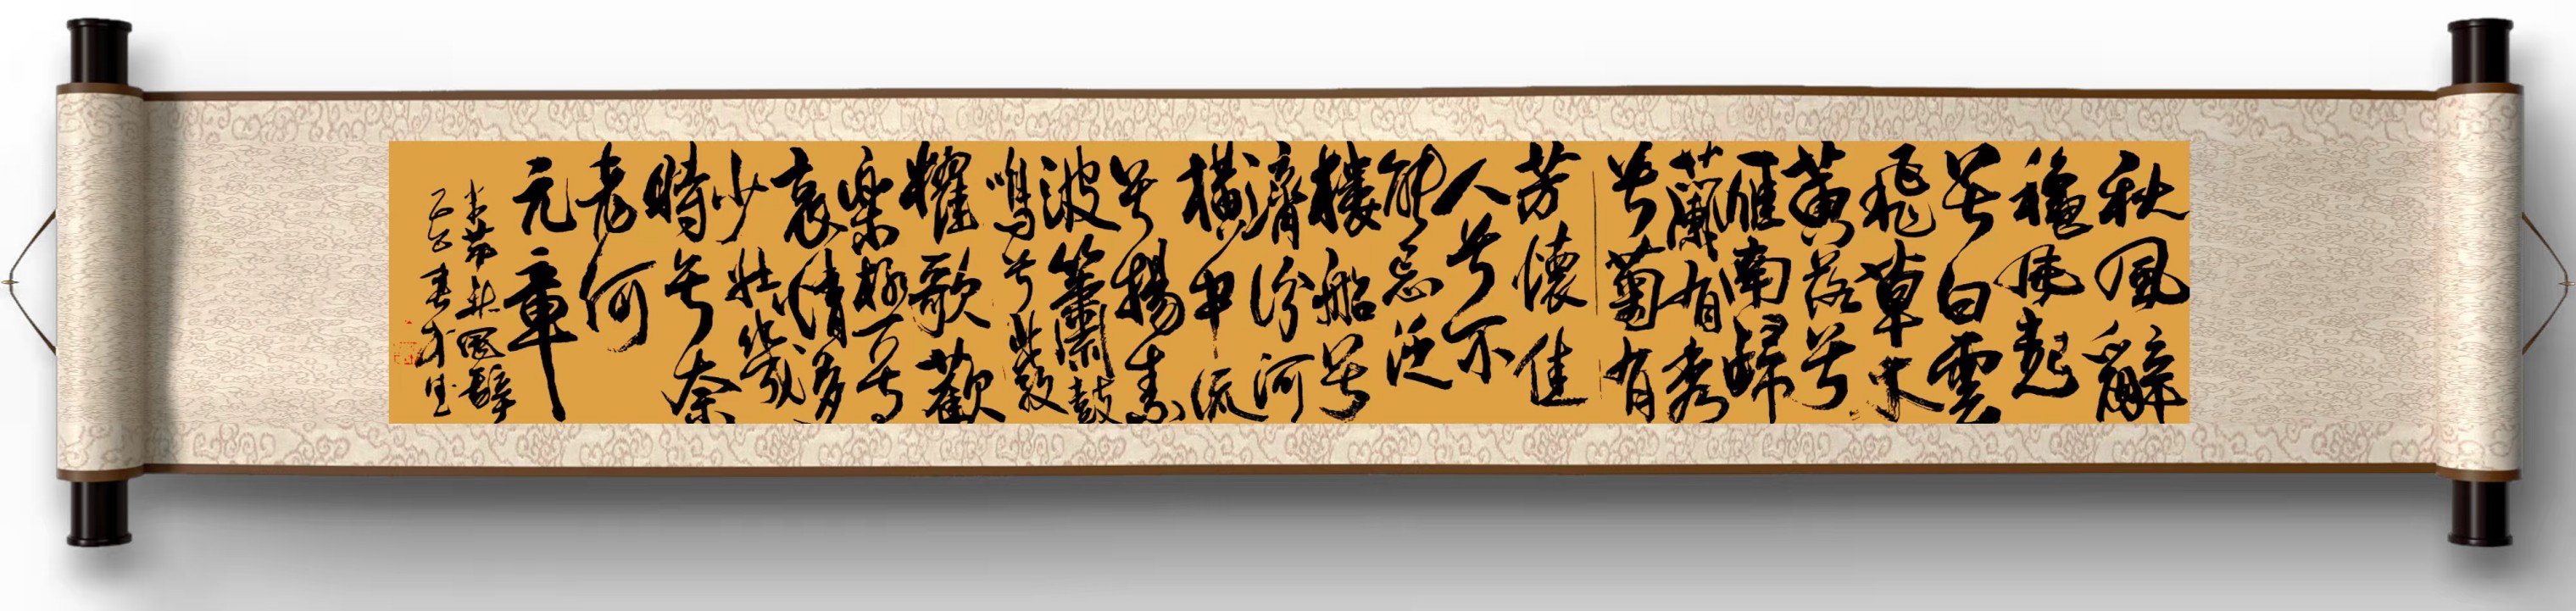 秋風辭
穐風起
兮白雲
飛草木
黃落兮
雁南歸
蘭有秀
兮菊有
芳懷佳
人兮不
能忘泛
樓船兮
濟汾河
橫中流
兮揚素
波簫鼓
鳴兮發
櫂歌歡
樂極兮
哀情多
少壯幾
時兮奈
老何
元章
米芾秋風辭
乙巳春